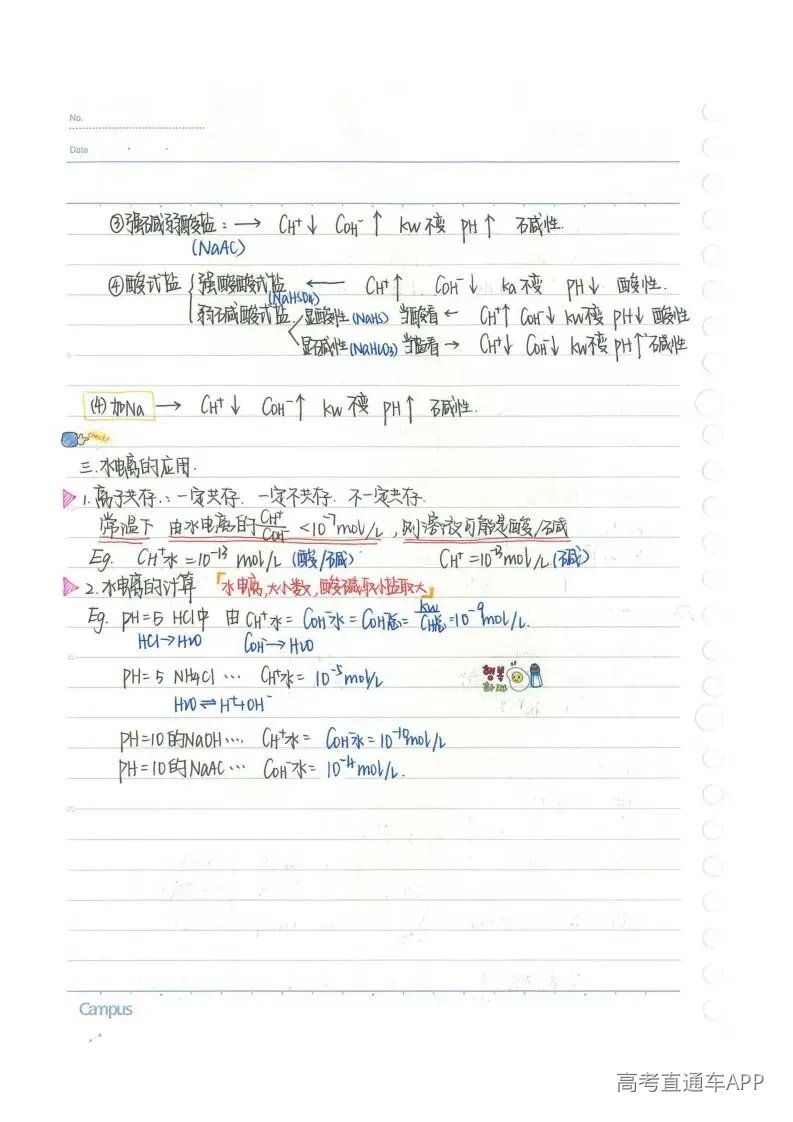 No.
Date
③强碱弱酸盐：→ CH⁺↓ COH⁻↑ kw不变 pH↑ 碱性.
(NaAC)
④酸式盐 { 强酸酸式盐 ← CH⁺↑ COH⁻↓ ka不变 pH↓ 酸性.
(NaHSO4)
弱石碱酸式盐 显酸性(NaHS) 当酸看 ← CH⁺↑ COH⁻↓ kw不变 pH↓ 酸性
显碱性(NaHCO3) 当盐看 → CH⁺↓ COH⁻↓ kw不变 pH↑ 碱性
(4)加Na → CH⁺↓ COH⁻↑ kw不变 pH↑ 碱性.
check!
三.水电离的应用.
1.离子共存.：一定共存. 一定不共存. 不一定共存.
常温下 由水电离的CH⁺/COH⁻ <10⁻⁷mol/L, 则溶液可能是酸/碱
Eg. CH⁺水=10⁻¹³ mol/L (酸/碱) CH⁺=10⁻¹³mol/L(碱)
2.水电离的计算 「水电离,大小数,酸碱取小盐取大」
Eg. pH=5 HCl中 由CH⁺水= COH⁻水=COH⁻总=kw/CH⁺总=10⁻⁹mol/L.
HCl→H2O COH⁻→H2O
pH=5 NH4Cl … CH⁺水= 10⁻⁵mol/L
행복
하자
H2O⇌H⁺+OH⁻
pH=10的NaOH… CH⁺水= COH⁻水=10⁻¹⁰mol/L
pH=10的NaAC… COH⁻水= 10⁻⁴mol/L.
Campus
高考直通车APP